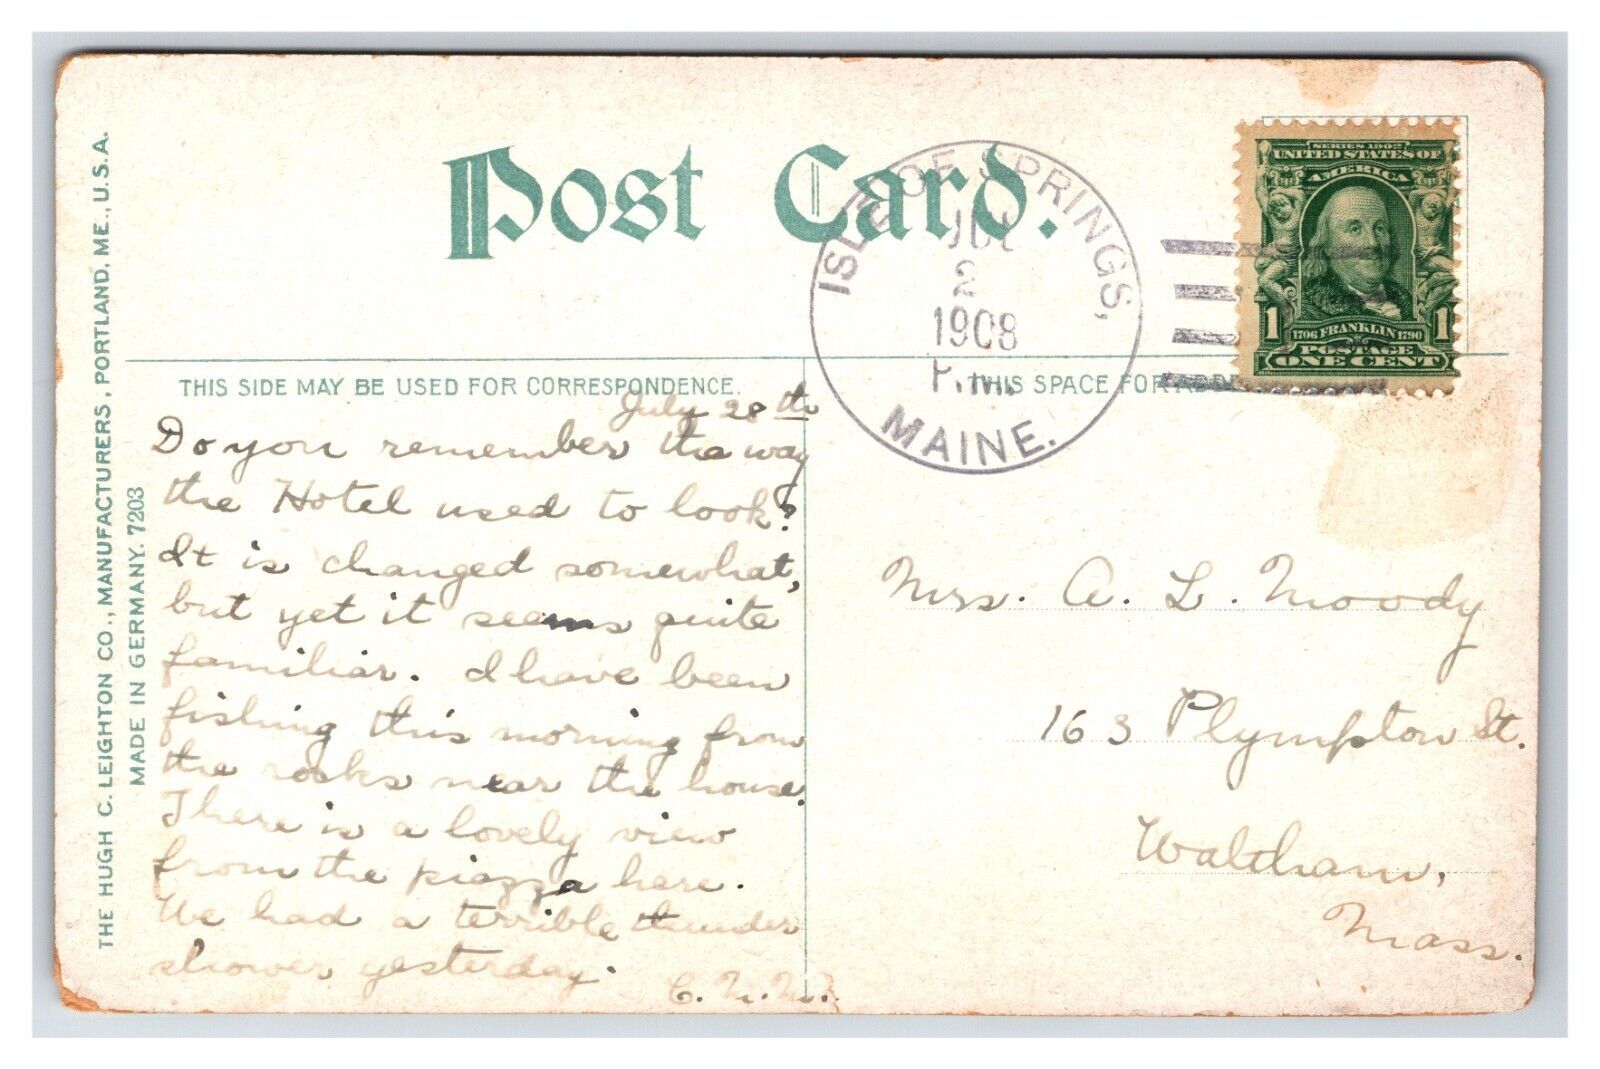 Post Card.
THE HUGH C. LEIGHTON CO., MANUFACTURERS, PORTLAND, ME., U.S.A.
MADE IN GERMANY. 7203
ISLE OF SPRINGS,
JUL
2
1908
P.M.
MAINE.
SERIES 1902
UNITED STATES OF
AMERICA
1706 FRANKLIN 1790
1 1
POSTAGE
ONE CENT
THIS SIDE MAY BE USED FOR CORRESPONDENCE.
THIS SPACE FOR ADDRE
July 28th
Do you remember the way
the Hotel used to look?
It is changed somewhat,
but yet it seems quite
familiar. I have been
fishing this morning from
the rocks near the house.
There is a lovely view
from the piazza here.
We had a terrible thunder
shower yesterday.
Mrs. A. L. Moody
163 Plympton St.
Waltham,
Mass.